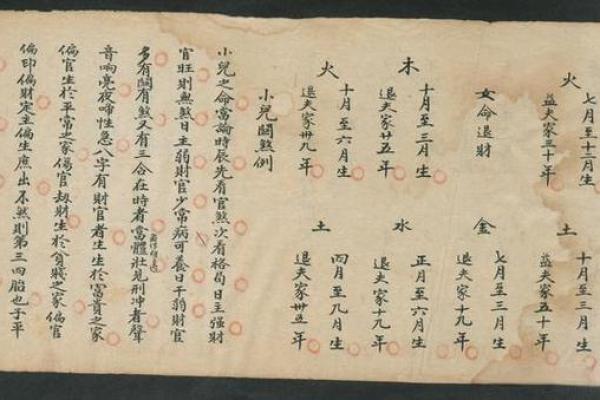 火
七月至十二月生
益夫家三十年
土
十月至三月生
益夫家五十年
女命退財
金
七月至三月生
退夫家十九年
木
十月至三月生
退夫家廿五年
水
正月至六月生
退夫家十九年
火
十月至六月生
退夫家卅九年
土
四月至九月生
退夫家卅五年
小兒關煞例
小兒之命當論時辰先看官煞次看格局日主强財
官旺則無煞日主弱財官少常病可養日干弱財官
多有關有煞又有三合在時者當體壯見刑冲者聲
音响亮夜啼性急八字有財官者生生於富貴之家
偏官生於平常之家傷官劫財生於貧賤之家偏官
偏印偏財定主偏生庶出不煞則第三四胎也子平